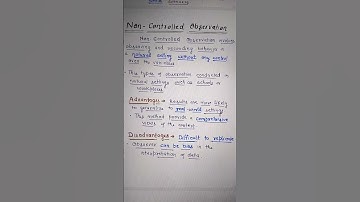 Non-Controlled Observation
Non-Controlled Observation involves
observing and recording behavior in
a natural setting without any control
over the variables
• This types of observation conducted in
natural settings such as schools or
workplaces
Advantages → Results are more likely
to generalize to real-world settings
• This method provide a comprehensive
views of the
Disadvantages → Difficult to replicate
• Observer can be bias in the
interpretation of data